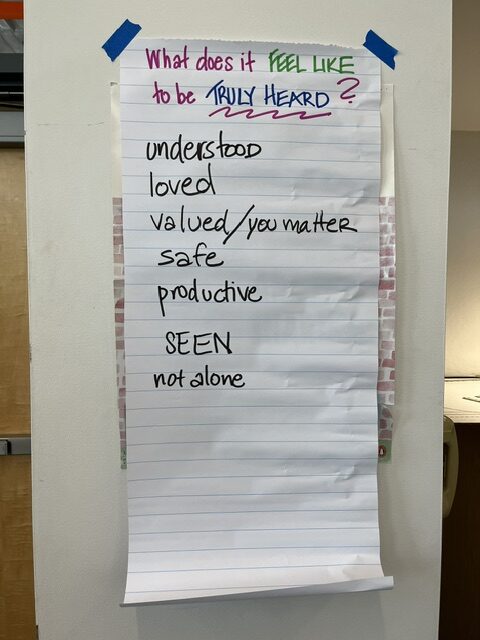 What does it FEEL LIKE
to be TRULY HEARD?
understOOD
loved
valued/you matter
safe
productive
SEEN
not alone